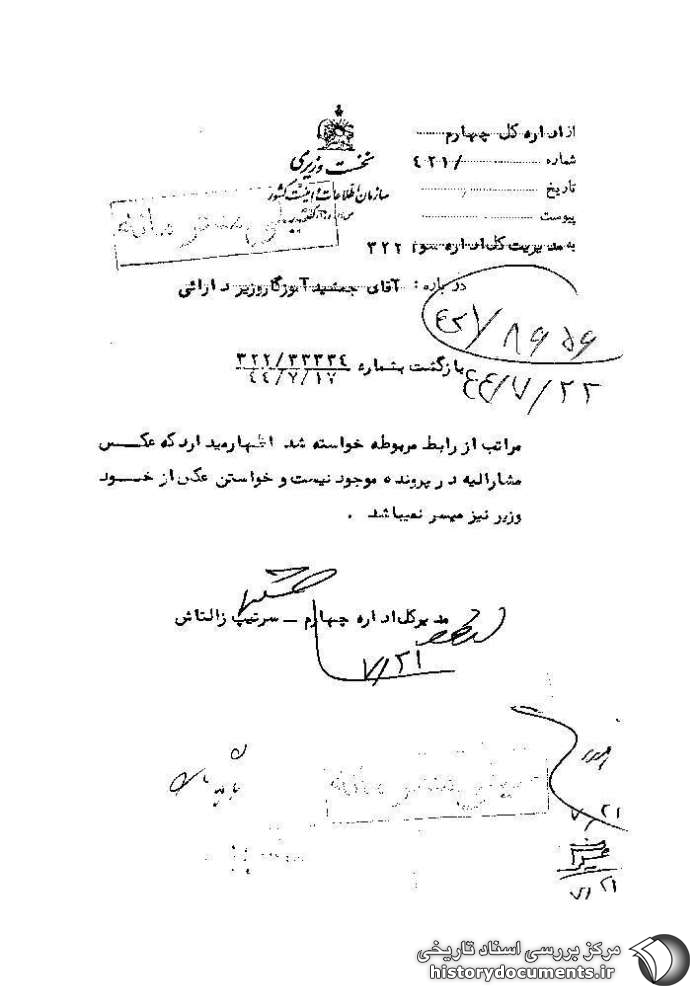 از اداره کل چهارم
شماره /۴۲۱
تاریخ
پیوست
به مدیریت کل اداره سوم ۳۲۲
نخست وزیری
سازمان اطلاعات و امنیت کشور
خیلی محرمانه
درباره : آقای جمشید آموزگار وزیر دارائی
۴۲۱/۸۶۵۶
۴۴/۷/۲۲
بازگشت بشماره ۳۲۲/۳۳۳۳۴
۴۴/۷/۱۷
مراتب از رابط مربوطه خواسته شد اظهار میدارد که عکس
مشارالیه در پرونده موجود نیست و خواستن عکس از خود
وزیر نیز میسر نمیباشد .
مدیرکل اداره چهارم ــ سرتیپ زالتاش
۷/۲۱
خیلی محرمانه
۷/۲۱
۷/۲۱
مرکز بررسی اسناد تاریخی
historydocuments.ir